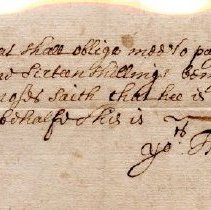 shall oblige mee to pa
Sixteen shillings
Moses saith that hee is
behalfe this is
yors